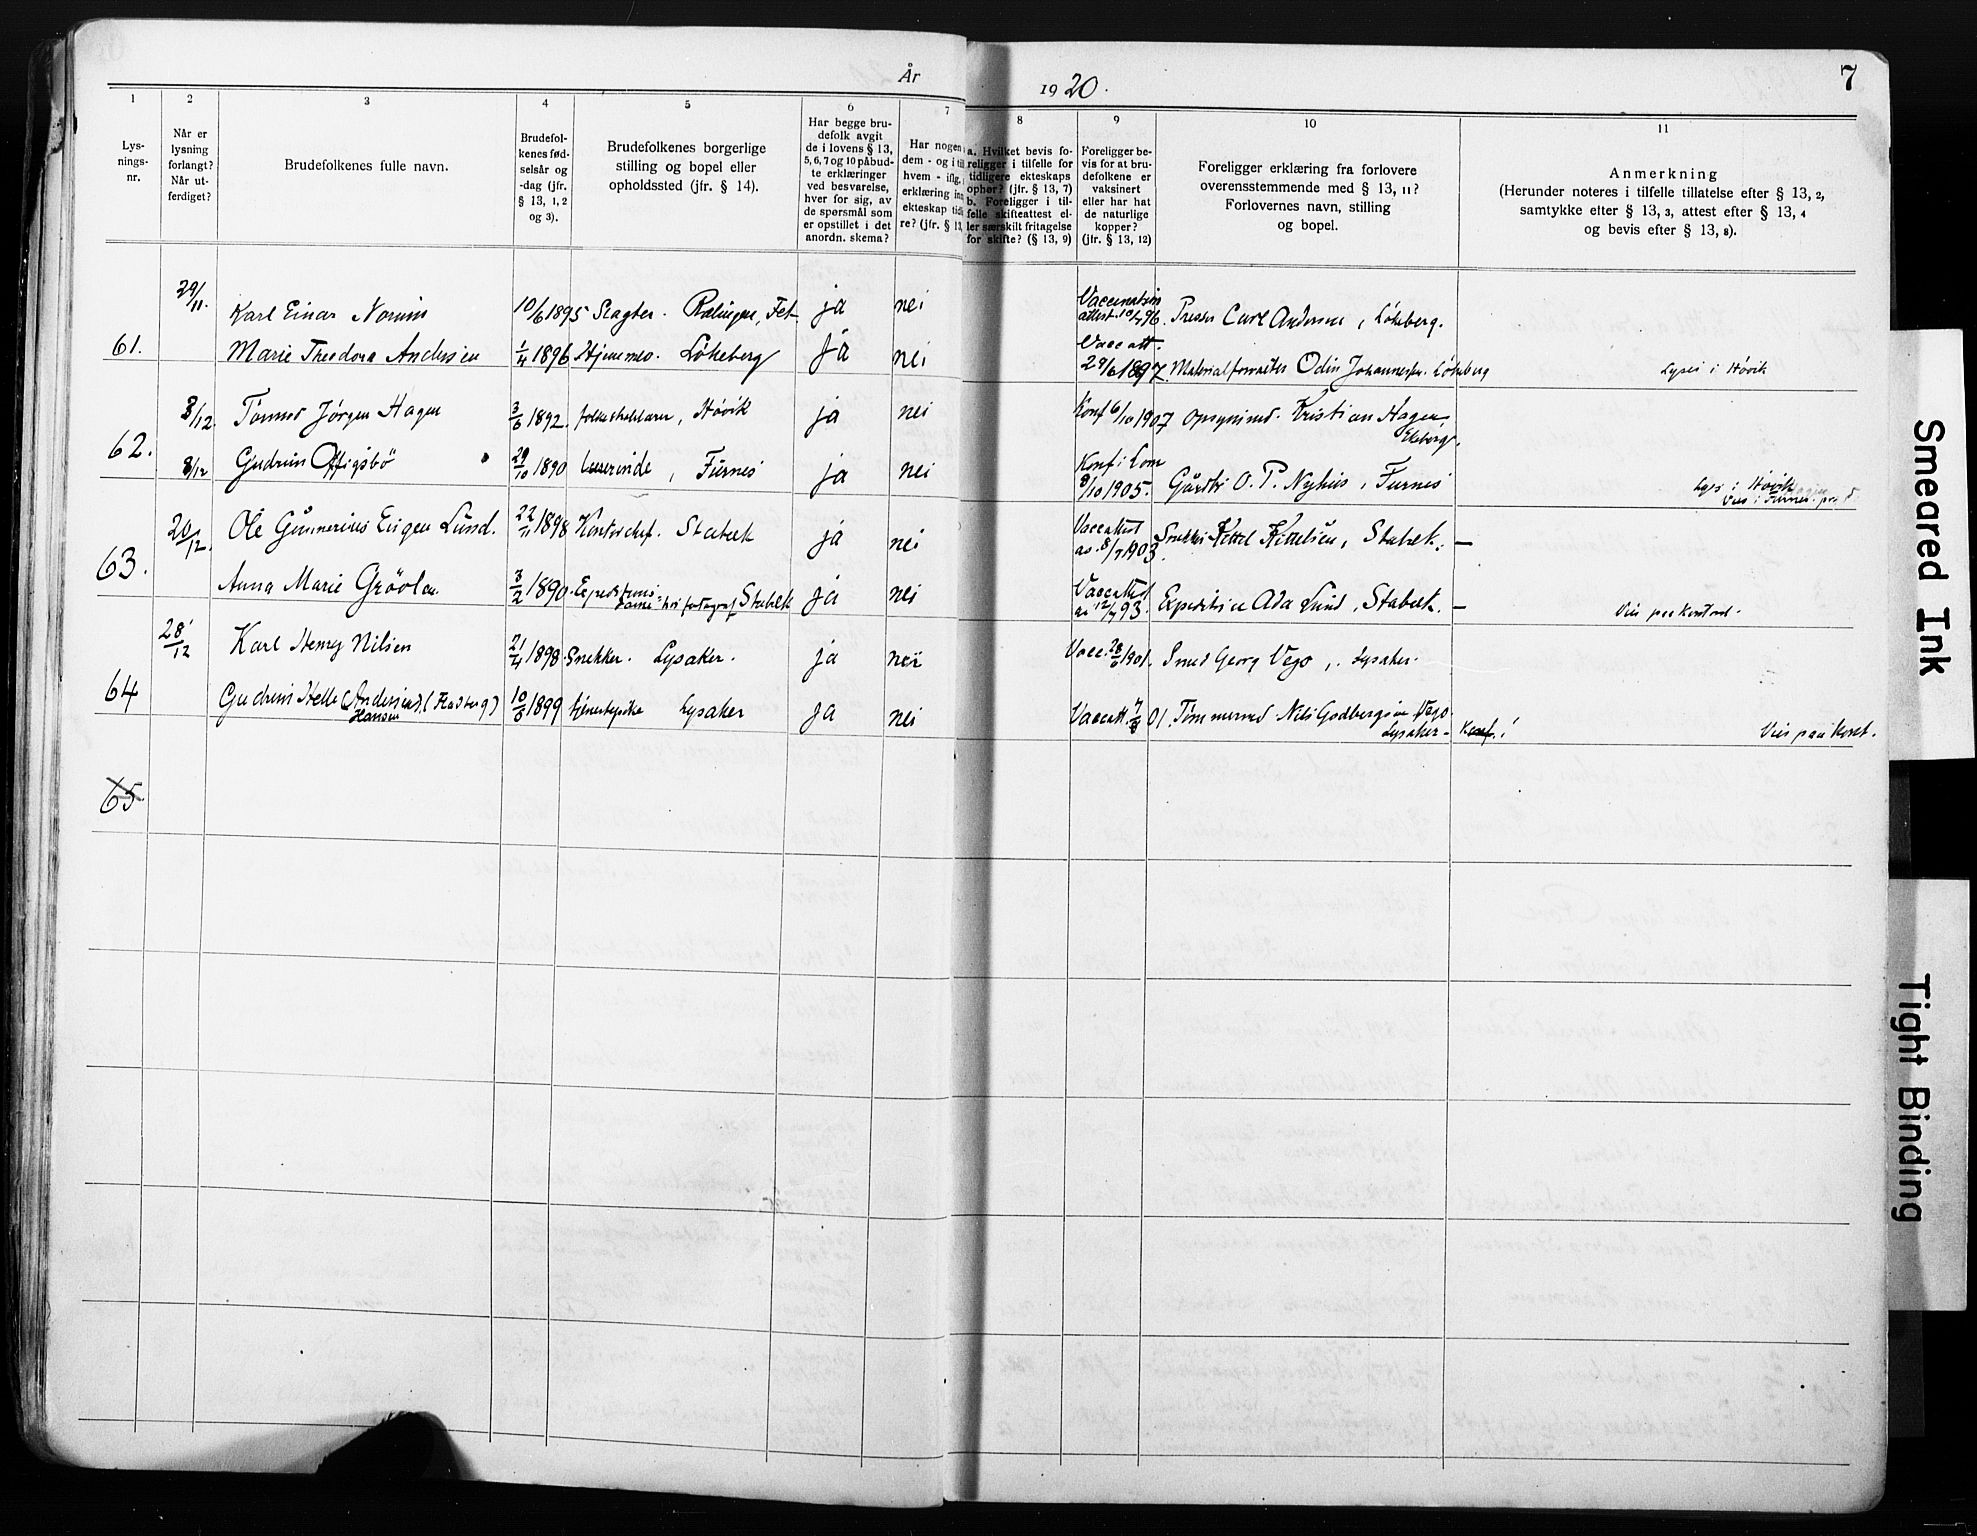 År 1920.
7
1 2 3 4 5 6 7 8 9 10 11
Lys-
nings-
nr.
Når er
lysning
forlangt?
Når ut-
ferdiget?
Brudefolkenes fulle navn.
Brudefol-
kenes fød-
selsår og
-dag (jfr.
§ 13, 1, 2
og 3).
Brudefolkenes borgerlige
stilling og bopel eller
opholdssted (jfr. § 14).
Har begge bru-
defolk avgit
de i lovens § 13,
5, 6, 7 og 10 påbud-
te erklæringer
ved besvarelse,
hver for sig, av
de spørsmål som
er opstillet i det
anordn. skema?
Har nogen
dem - og i til
hvem - iflg.
erklæring inn
ekteskap tidl
re? (jfr. § 13,
a. Hvilket bevis fo-
religger i tilfelle for
tidligere ekteskaps
ophør? (jfr. § 13, 7)
b. Foreligger i til-
felle skifteattest el-
ler særskilt fritagelse
for skifte? (§ 13, 9)
Foreligger be-
vis for at bru-
defolkene er
vaksinert
eller har hat
de naturlige
kopper?
(jfr. § 13, 12)
Foreligger erklæring fra forlovere
overensstemmende med § 13, 11?
Forlovernes navn, stilling
og bopel.
Anmerkning
(Herunder noteres i tilfelle tillatelse efter § 13, 2,
samtykke efter § 13, 3, attest efter § 13, 4
og bevis efter § 13, 8).
29/11. Karl Einar 10/6 1895 Slagter. Rælingen, Fet ja nei Vaccination attest 10/7 96. Presser Carl Andersen, Løkeberg.
61. Marie Theodora Andersen 1/4 1896 Hjemme. Løkeberg ja nei Vacc att. 29/6 1897. Materialforvalter Odin Løkeberg Lyses i Høvik
3/12. Jørgen Hagen 3/6 1892. folkeskolelærer, Høvik ja nei Konf 6/10 1907 Kristian Hagen, Ekeberg.
62. 8/12 Gudrun 29/10 1890 lærerinde, Furnes ja nei Konf i Lom 8/10 1905. Gårdbr O. P. Nyhus, Furnes Lyses i Høvik
Vies i Furnes
20/12. Ole Gunnerius Eugen Lund. 22/11 1898 Kontorchef. Stabæk ja nei Vacc attest av 8/7 1903 Snekker Kittel Kittelsen, Stabæk. —
63. Anna Marie 3/2 1890. Expeditrise-
dame hos fotograf Stabæk ja nei Vacc attest av 12/7 93. Expeditrice Ada Lund, Stabæk. — Vies paa kontoret.
28/12 Karl Henry Nilsen 21/4 1898. Snekker. Lysaker. ja nei Vacc. 28/6 1901. Smed Georg Vego, Lysaker.
64 Gudrun Helle (Andersen) (Fladberg)
Hansen 10/8 1899 tjenestepike Lysaker ja nei Vaccatt. 7/8 01. Tømmermd Nils Godbergsen Vego
Lysaker - Konf. ! Vies paa kont.
65
Smeared Ink
Tight Binding